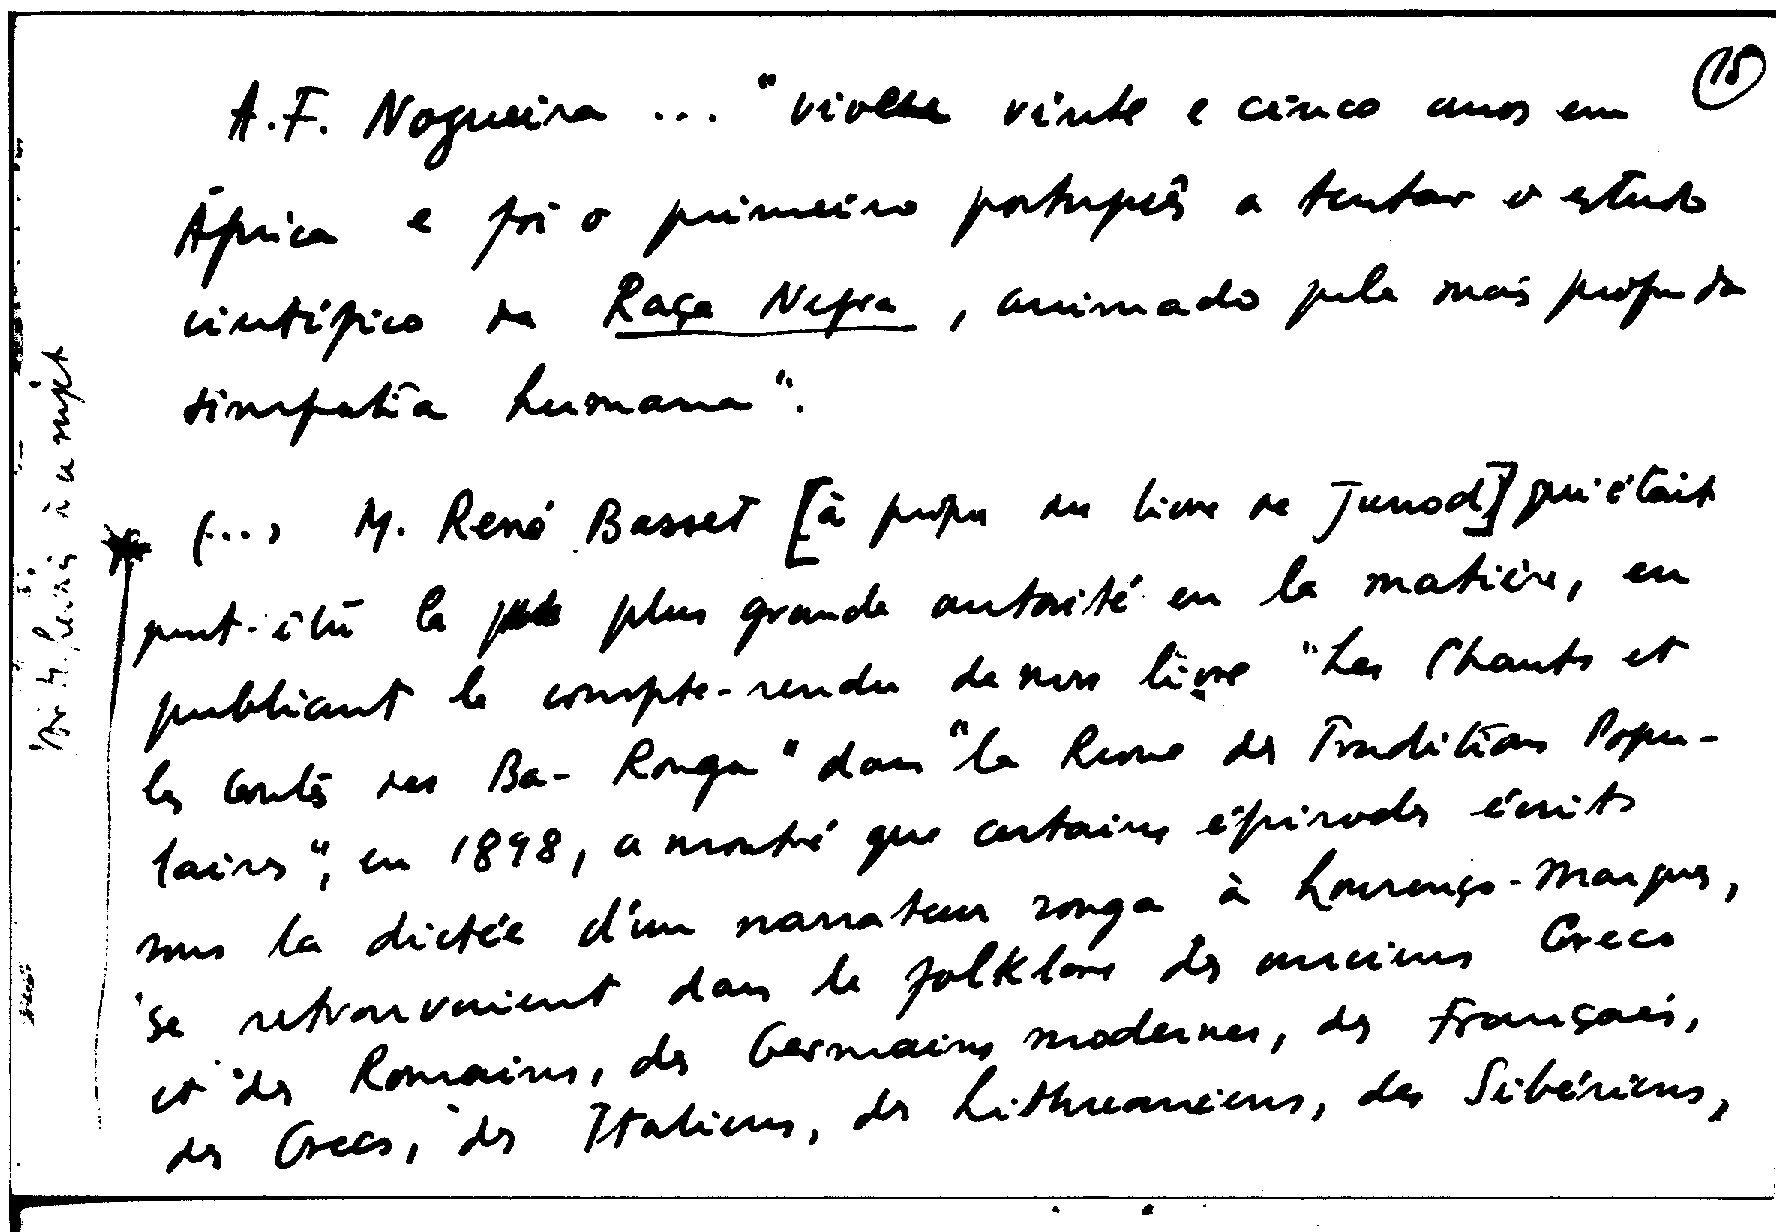 15
A.F. Nogueira ... "viveu vinte e cinco anos em
África e foi o primeiro português a tentar o estudo
científico da Raça Negra, animado pela mais profunda
simpatia humana".
(...) M. René Basset [à propos du livre de Junod] qui était
peut-être la plus grande autorité en la matière, en
publiant le compte-rendu de mon livre "Les Chants et
les Contes des Ba-Ronga" dans "la Revue des Traditions Popu-
laires", en 1898, a montré que certains épisodes écrits
sous la dictée d'un narrateur ronga à Lourenço-Marques,
se retrouvaient dans le folklore des anciens Grecs
et des Romains, des Germains modernes, des Français,
des Grecs, des Italiens, des Lithuaniens, des Sibériens,